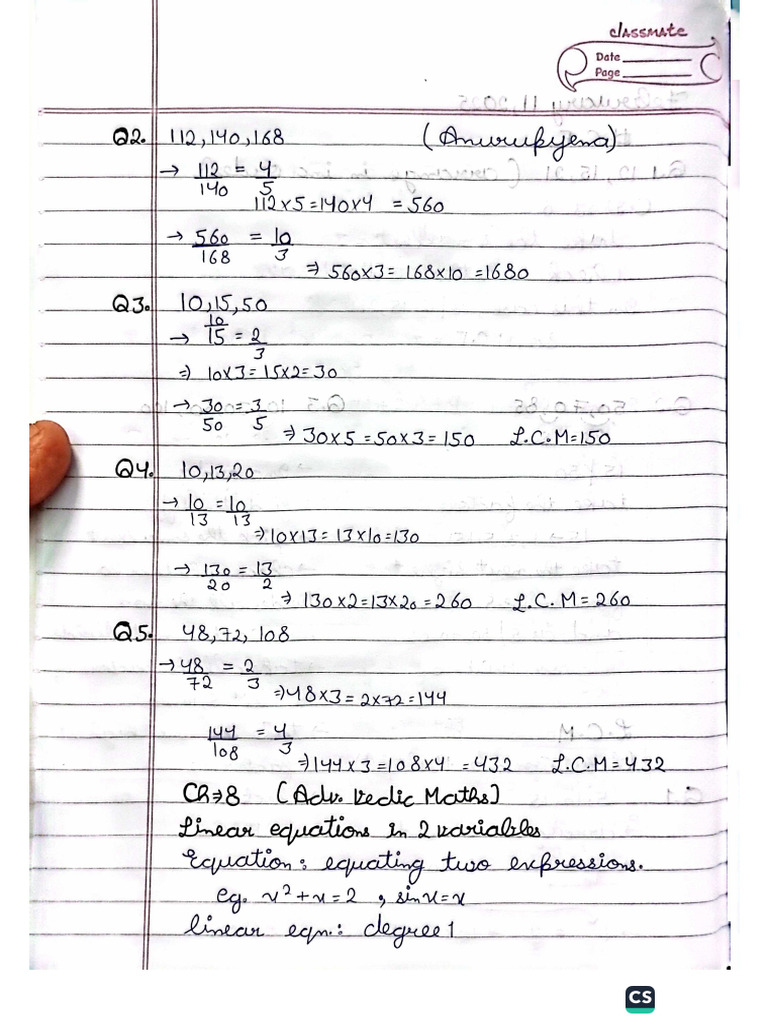 classmate
Date
Page
Q2. 112, 140, 168 (Anurupyena)
→ 112/140 = 4/5
112×5 = 140×4 = 560
→ 560/168 = 10/3
⇒ 560×3 = 168×10 = 1680
Q3. 10, 15, 50
→ 10/15 = 2/3
⇒ 10×3 = 15×2 = 30
→ 30/50 = 3/5
⇒ 30×5 = 50×3 = 150 L.C.M = 150
Q4. 10, 13, 20
→ 10/13 = 10/13
⇒ 10×13 = 13×10 = 130
→ 130/20 = 13/2
⇒ 130×2 = 13×20 = 260 L.C.M = 260
Q5. 48, 72, 108
→ 48/72 = 2/3
⇒ 48×3 = 2×72 = 144
144/108 = 4/3
⇒ 144×3 = 108×4 = 432 L.C.M = 432
Ch⇒8 [Adv. Vedic Maths]
Linear equations in 2 variables
Equation: equating two expressions.
eg. x² + x = 2 , sinx = x
linear eqn.: degree 1
CS